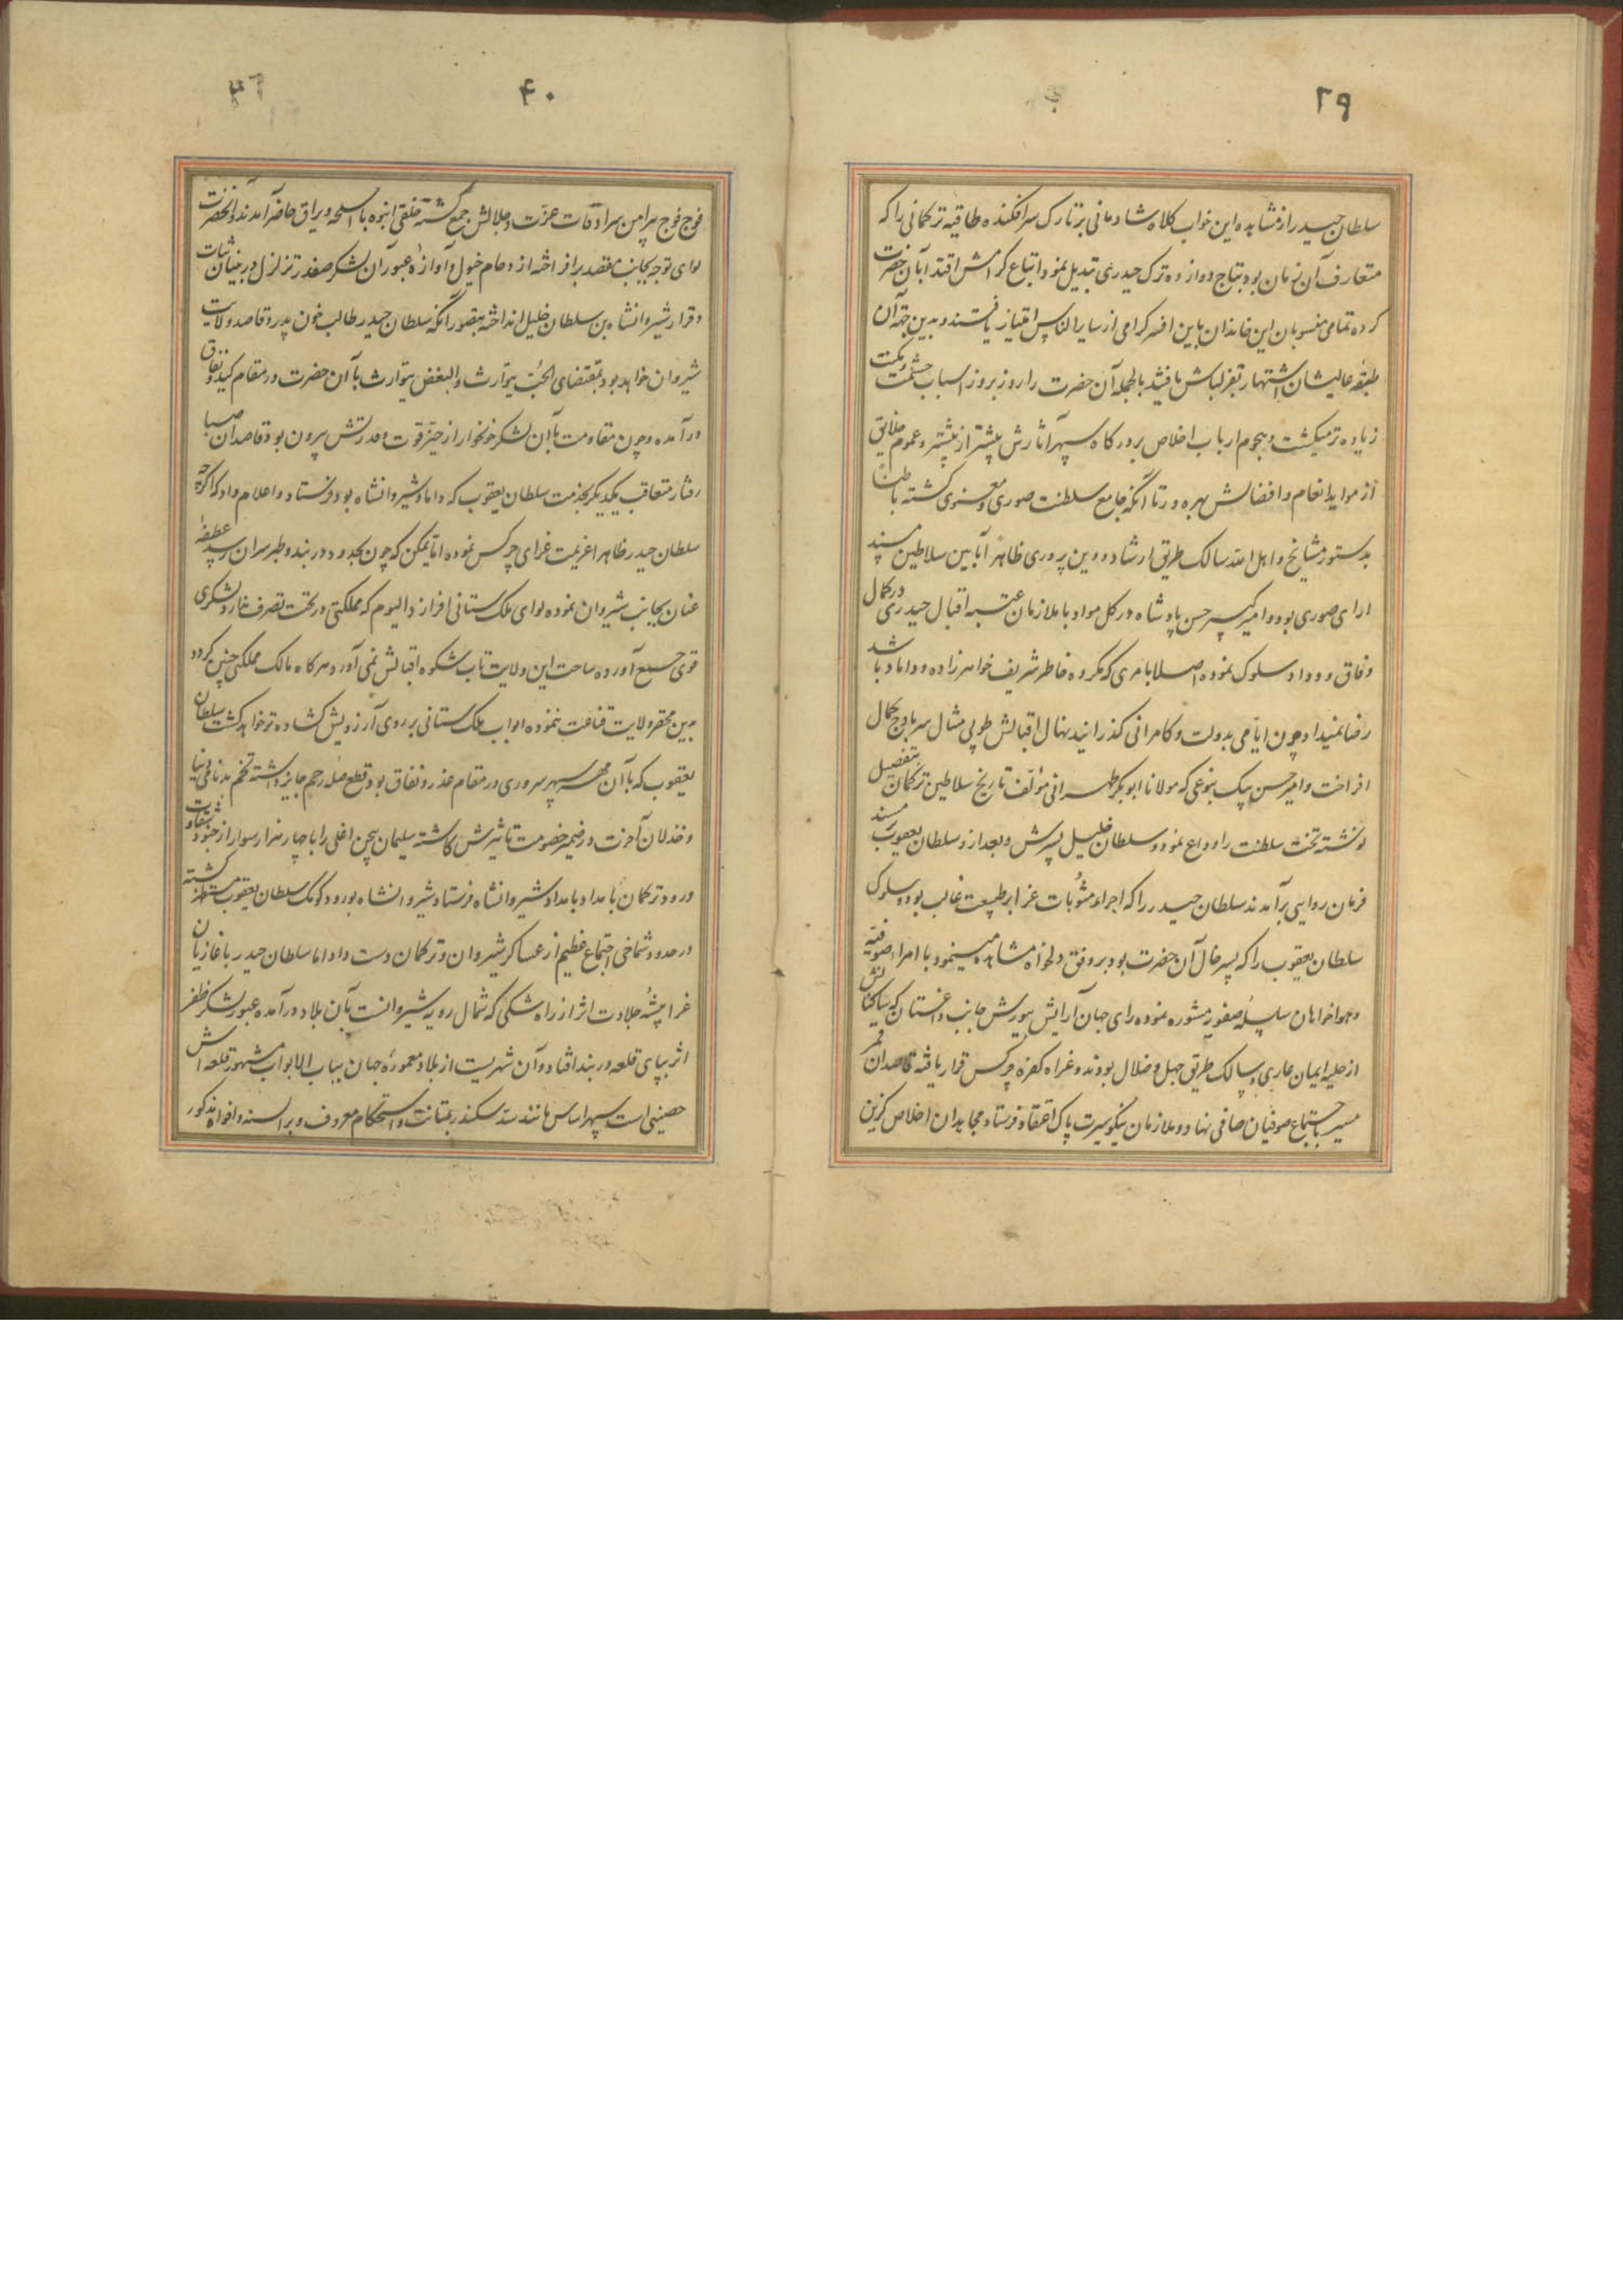 ۳۹
سلطان حیدر از مشاهده این خواب کلاه شادمانی بر تارک سر افکنده طاقیه ترکمانی را که
متعارف آن زمان بود بتاج دوازده ترک حیدری تبدیل نمود و اتباع کرامش اقتدا بآن حضرت
کرده تمامی منسوبان این خاندان باین افسر کرامی از سایر الناس امتیاز یافتند و بدین جهة آن
طبقه عالیشان اشتهار بقزلباش یافتند بالجمله آن حضرت را روز بروز اسباب حشمت و مکنت
زیاده تر میکشت و هجوم ارباب اخلاص بر درکاه سپهر آثارش بیشتر از پیشتر و عموم خلایق
از مواید انعام و افضالش بهره ور تا آنکه جامع سلطنت صوری و معنوی کشته باطناً
بدستور مشایخ و اهل الله سالک طریق ارشاد و دین پروری ظاهراً بآیین سلاطین مسند
ارای صوری بود و امیر کبیر حسن پادشاه در کل مواد با ملازمان عتبه اقبال حیدری در کمال
وفاق و وداد سلوک نموده اصلا بامری که مکروه خاطر شریف خواهرزاده و داماد باشد
رضا نمیداد چون ایامی بدولت و کامرانی کذرانید نهال اقبالش طوبی مثال سر باوج کمال
افراخت و امیر حسن بیک بنوعی که مولانا ابوبکر طهرانی مؤلف تاریخ سلاطین ترکمان بتفصیل
نوشته تخت سلطنت را وداع نمود و سلطان خلیل پسرش و بعد ازو سلطان یعقوب بر مسند
فرمان روایی برآمدند سلطان حیدر را که اجراء مثوبات غزا بر طبیعت غالب بود و سلوک
سلطان یعقوب را که پسر خال آن حضرت بود بر وفق دلخواه مشاهده مینمود با امراء صوفیه
و هواخواهان سلسله صفویه مشوره نموده رای جهان آرایش بیورش جانب داغستان که ساکنانش
از حلیه ایمان عاری و سالک طریق جهل و ضلال بودند و غزاء کفره چرکس قرار یافته قاصدان قمر
مسیر باجتماع صوفیان صافی نهاد و ملازمان نیکو سیرت پاک اعتقاد فرستاد مجاهدان اخلاص کزین
۴۰
فوج فوج پیرامن سرادقات عزت و جلالش جمع کشته خلقی انبوه با اسلحه و یراق حاضر آمدند و آنحضرت
لوای توجه بجانب مقصد برافراخته از دحام خیول و آوازه عبور آن لشکر صفدر تزلزل در بنیان ثبات
و قرار شیروانشاه بن سلطان خلیل انداخته بتصور آنکه سلطان حیدر طالب خون پدر و قاصد ولایت
شیروان خواهد بود بمقتضای الحب یتوارث و البغض یتوارث با آن حضرت در مقام کید و نفاق
درآمده و چون مقاومت با آن لشکر خونخوار از حیز قوت و قدرتش بیرون بود قاصدان صبا
رفتار متعاقب یکدیکر بخدمت سلطان یعقوب که داماد شیروانشاه بود فرستاد و اعلام داد که اکرچه
سلطان حیدر ظاهرا عزیمت غزای چرکس نموده اما یمکن که چون بحدود دربند و طبرسران رسد عطفه
عنان بجانب شیروان نموده لوای ملک ستانی افرازد الیوم که مملکتی در تحت تصرف ندارد و لشکری
قوی جمع آورده ساحت این ولایت تاب شکوه اقبالش نمی آورد هرکاه مالک مملکتی چنین کردد
بدین محقر ولایت قناعت ننموده ابواب ملک ستانی بر روی آرزویش کشاده تر خواهد کشت سلطان
یعقوب که با آن مهر سپهر سروری در مقام غدر و نفاق بود قطع صله رحم جایز داشته تخم بدنامی دنیا
و خذلان آخرت در ضمیر خصومت تاثیرش کاشته سلیمان بیجن اغلی را با چهار هزار سوار از جنود شقاوت
ورود ترکمان بامداد بامداد شیروانشاه فرستاد شیروانشاه بورود کومک سلطان یعقوب مستظهر کشته
در حدود شماخی اجتماع عظیم از عساکر شیروان و ترکمان دست داد اما سلطان حیدر با غازیان
غزا پیشه جلادت اثر از راه شکی که شمال رویه شیروانست بآن بلاد درآمده عبور لشکر ظفر
اثر بپای قلعه دربند افتاد و آن شهریست از بلاد معموره جهان بباب الابواب مشهور قلعه اش
حصینی است سپهر اساس مانند سد سکندر بمتانت و استحکام معروف و بر السنه و افواه مذکور